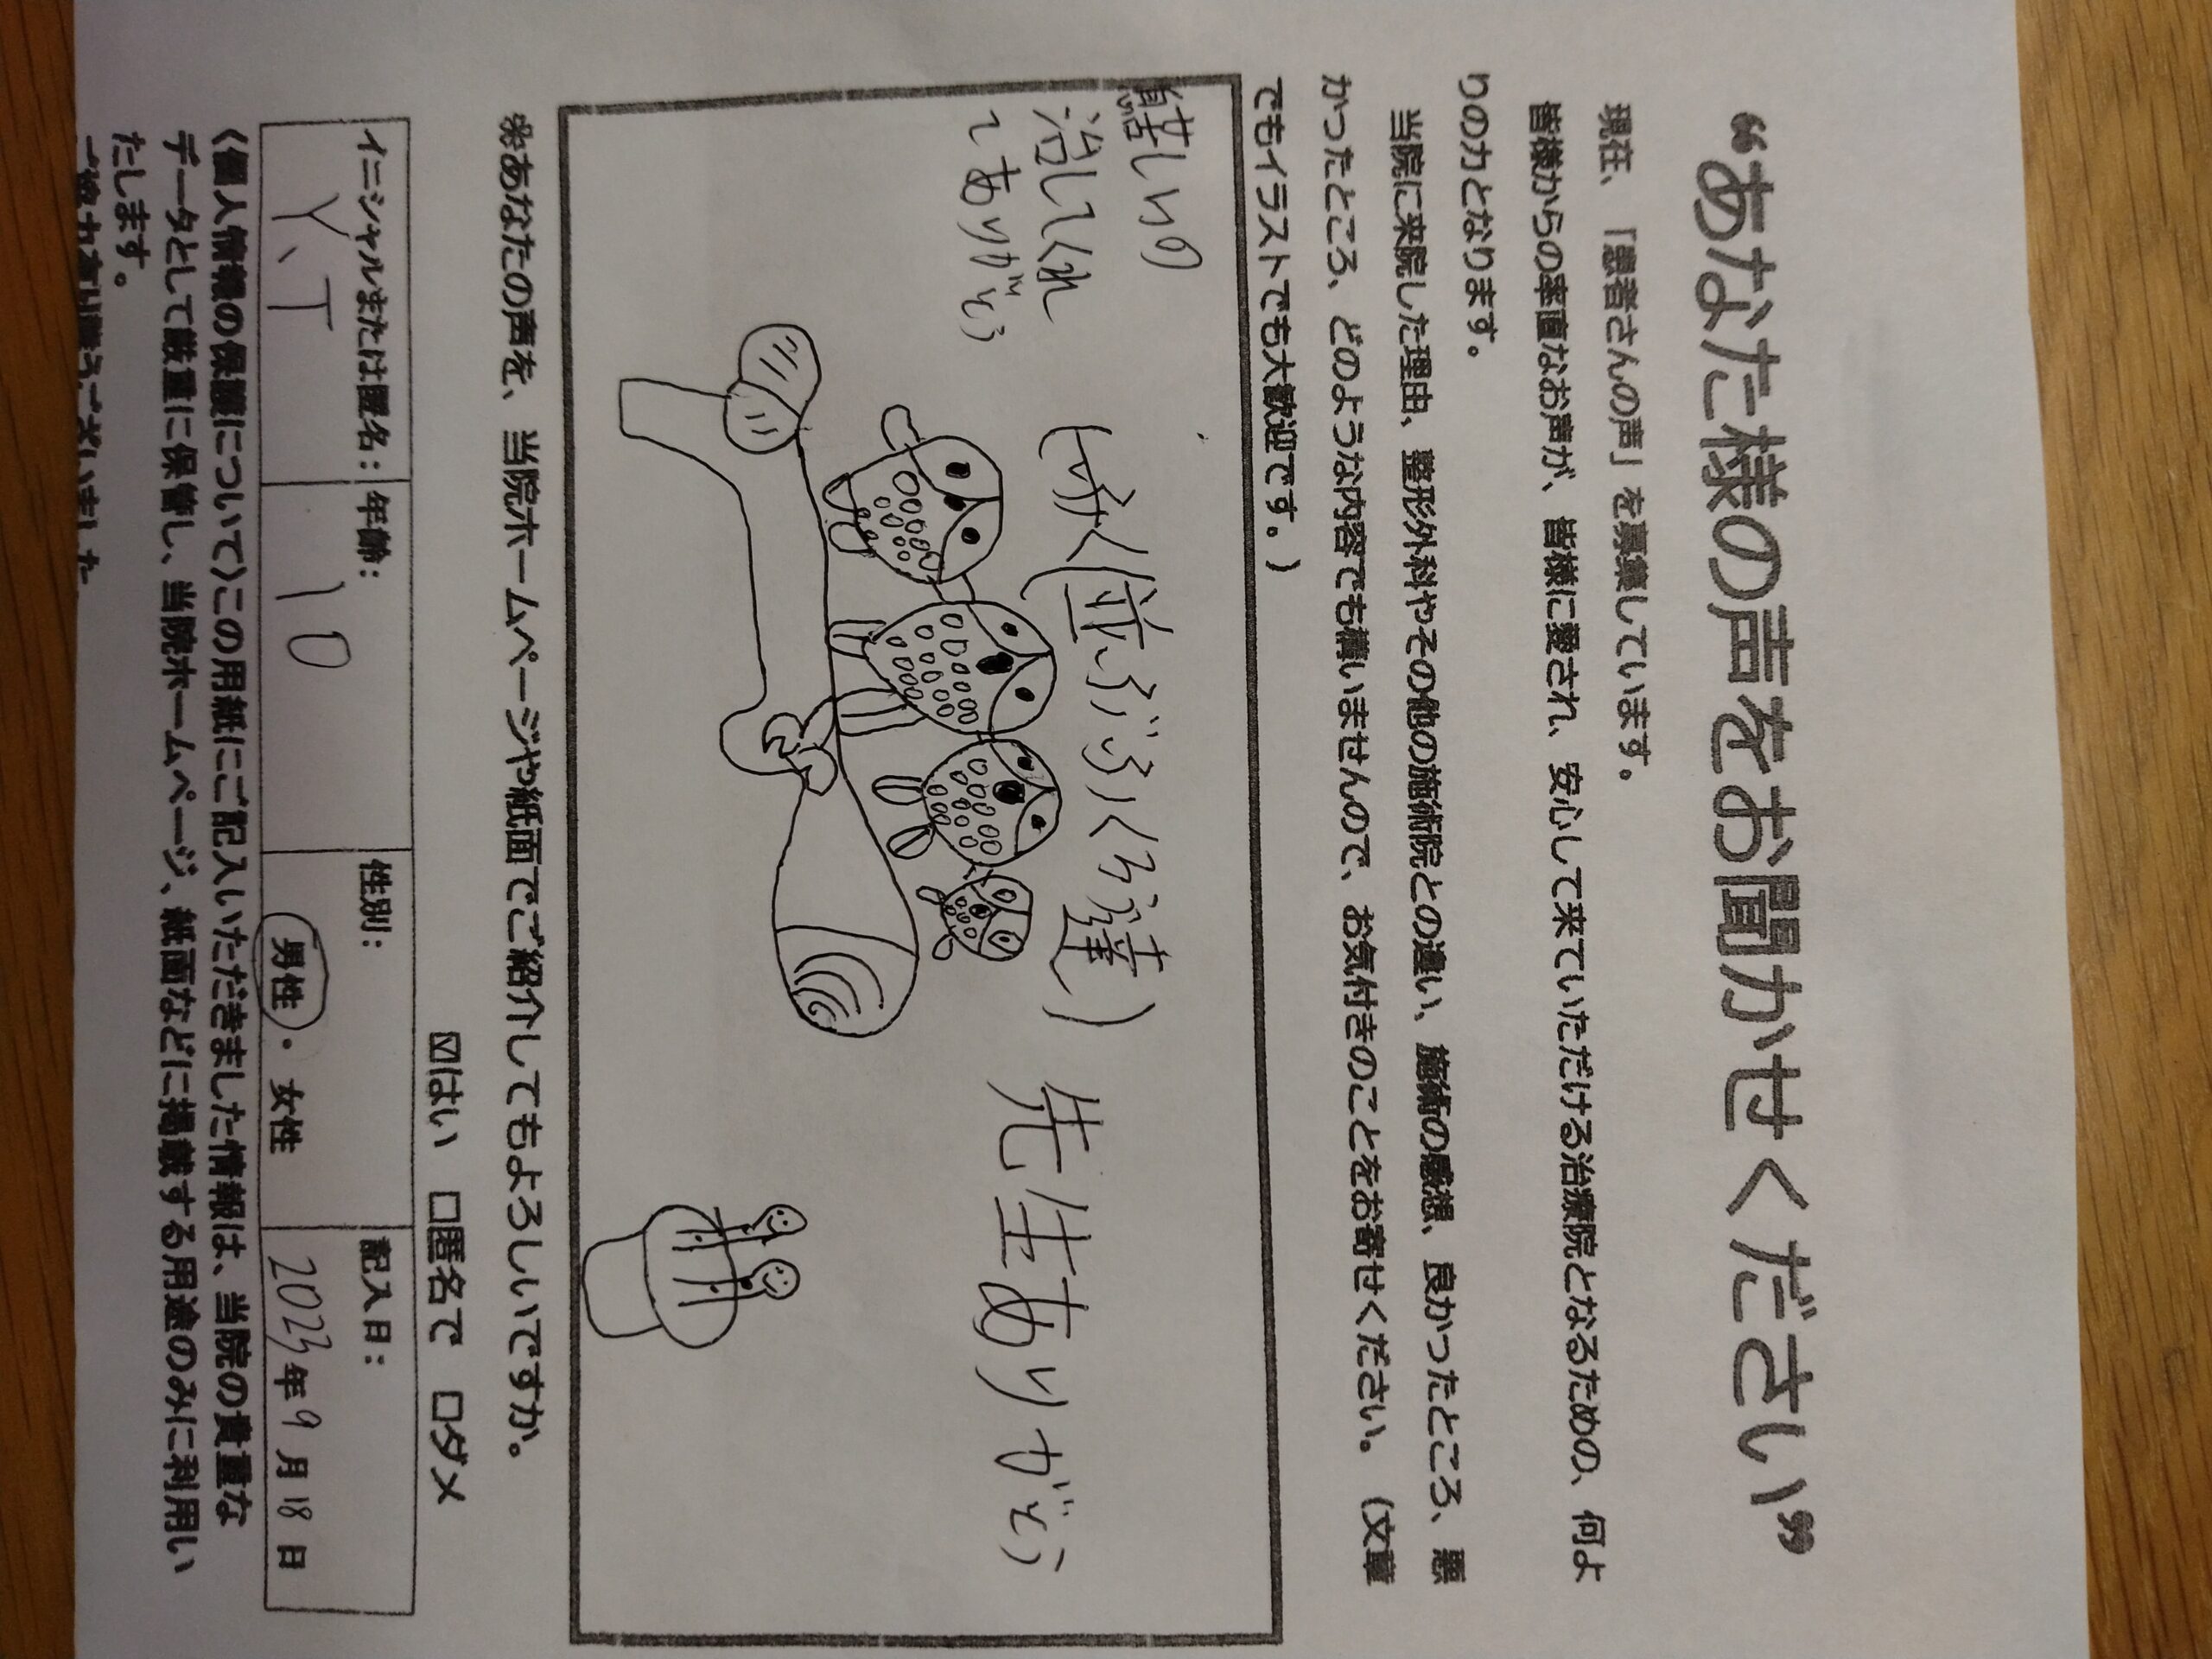 “あなた様の声をお聞かせください”
現在、「患者さんの声」を募集しています。
皆様からの率直なお声が、皆様に愛され、安心して来ていただける治療院となるための、何よ
りの力となります。
当院に来院した理由、整形外科やその他の施術院との違い、施術の感想、良かったところ、悪
かったところ、どのような内容でも構いませんので、お気付きのことをお寄せください。（文章
でもイラストでも大歓迎です。）
しいの
治してくれ
てありがとう
(並ぶふくろう達)
先生ありがとう
※あなたの声を、当院ホームページや紙面でご紹介してもよろしいですか。
☑はい □匿名で □ダメ
イニシャルまたは匿名： 年齢： 性別： 記入日：
Y、T 10 男性・女性 2023年9月18日
〈個人情報の保護について〉この用紙にご記入いただきました情報は、当院の貴重な
データとして厳重に保管し、当院ホームページ、紙面などに掲載する用途のみに利用い
たします。